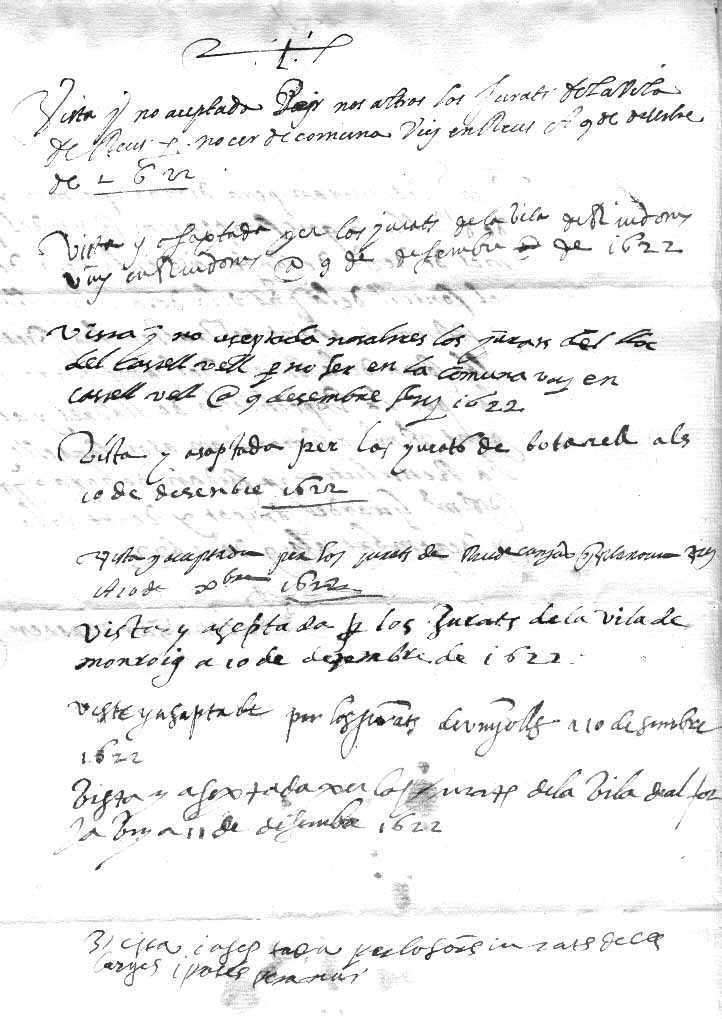 Vista y no aceptada per nos altros los Jurats de la Vila
de Reus p. no cer de comuna Vuy en Reus A 9 de desebre
de 1622
Vista y asaptada per los jurats de la Vila de Riudoms
Vuy en Riudoms @ 9 de desembre de 1622
Vista y no aseptada nosaltres los jurats del lloc
del Castell vell p no ser en la Comuna vuy en
Castell vell @ 9 desembre 1622
Vista y asaptada per los jurats de botarell als
10 de desembre 1622
Vista y acaptada per los jurats de
A 10 de xbre 1622
Vista y aseptada p los Jurats de la vila de
monroig a 10 de dezembre de 1622
Viste y asaptade per los jurats de vinyols a 10 desembre
1622
Vista y aseptada per los Jurats de la Vila de alfor
ja Vuy a 11 de desembre 1622
Vista i asep tada per los jurats de les